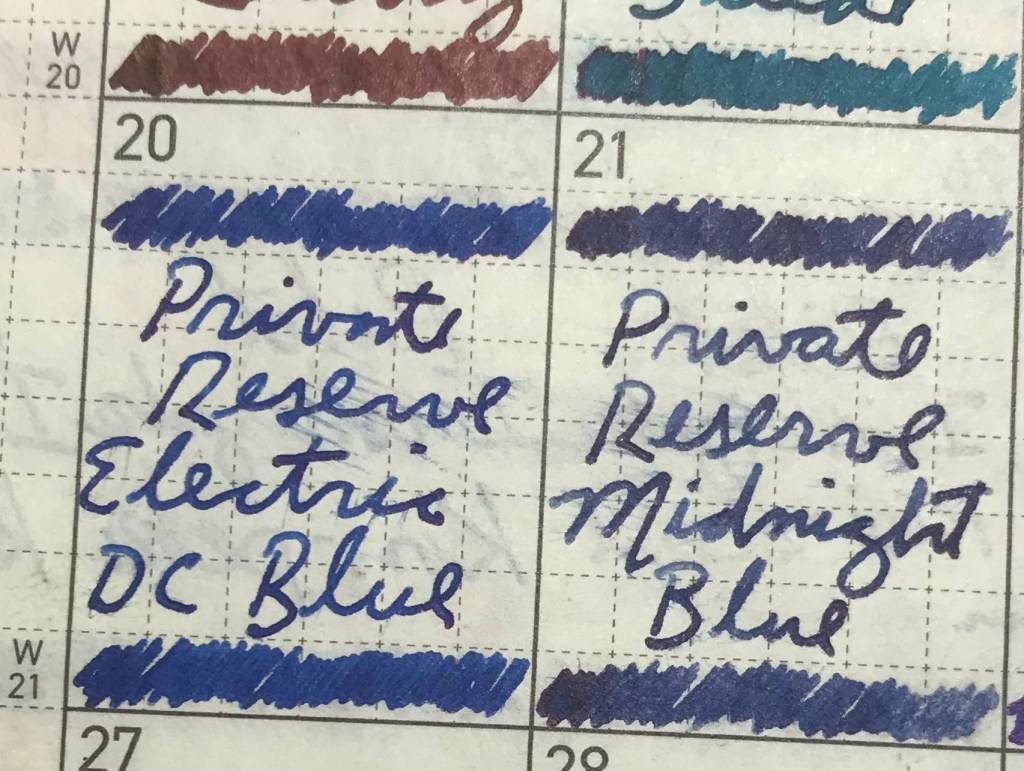 W
20
20
Private
Reserve
Electric
DC Blue
21
Private
Reserve
Midnight
Blue
W
21
27
28